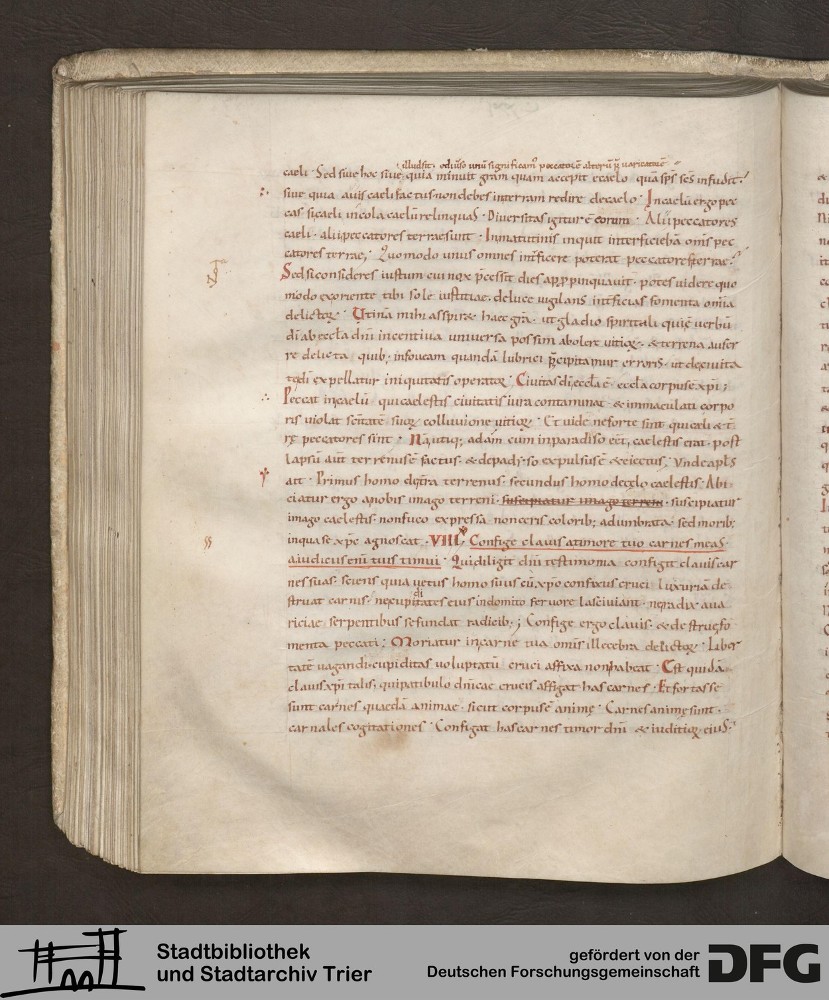 illud sit. odiuso unu significam peccatore alteru p uaricatione
caeli · Sed siue hoc siue, quia minuit gram quam accepit ecaelo quasps scs infudit.
siue quia auis caeli factus non debes interram redire decaelo · Incaelu ergo pec
cas sicaeli incola caelu relinquas · Diuersitas igitur e eorum · Alii peccatores
caeli · alii peccatores terrae sunt · Inmatutinis inquit interficieba oms pec
catores terrae; Quomodo unus omnes interficere poterat peccatores terrae?
Sed si consideres iustum cui nox pcessit dies appropinquauit · potes uidere quo
modo exoriente tibi sole iustitiae · deluce uigilans interficias fomenta omnia
delictorum · Utina mihi aspiret haec gra · ut gladio spiritali qui e uerbu
di ab eccla dni incentiua uniuersa possim abolere uitiorum · & terrena aufer
re delicta quib; infoueam quanda lubrici pcipitamur erroris · ut deciuita
te di expellatur iniquitatis operator · Ciuitas di eccla e · eccla corpus e xpi;
Peccat incaelu qui caelestis ciuitatis iura contaminat · & immaculati corpo
ris uiolat scitate suorum colluuione uitiorum · Et uide ne forte sint qui caeli & t
re peccatores sint · Na utiq; adam cum inparadiso eet, caelestis erat · post
lapsu aut terrenus e factus · & de paradyso expulsus e & eiectus; Unde apls
ait · Primus homo de terra terrenus · secundus homo de caelo caelestis · Abi
ciatur ergo anobis imago terreni · suscipiatur imago terreni · suscipiatur
imago caelestis · non fuco expressa non ceris colorib; adumbrata · sed morib;
in qua se xpc agnoscat · VIII; Confige clauis atimore tuo carnes meas
aiudiciis eni tuis timui · Qui diligit dni testimonia configit clauis car
nes suas · sciens quia uetus homo suus cu xpo confixus cruci luxuria de
struat carnis · nec cupiditates eius indomito feruore lasciuiant · neq radix aua
riciae serpentibus se fundat radicib;; Confige ergo clauis · & destrue fo
menta peccati; Moriatur incarne tua omis illecebra delictorum · Liber
tate uagandi cupiditas uoluptatu cruci affixa non habeat · Est quida
clauis xpi talis, qui patibulo dnicae crucis affigat has carnes · Et fortasse
sunt carnes quaeda animae · sicut corpus e anime · Carnes anime sunt ·
carnales cogitationes · Configat has carnes timor dni & iuditiorum eius
Stadtbibliothek
und Stadtarchiv Trier
gefördert von der
Deutschen Forschungsgemeinschaft
DFG